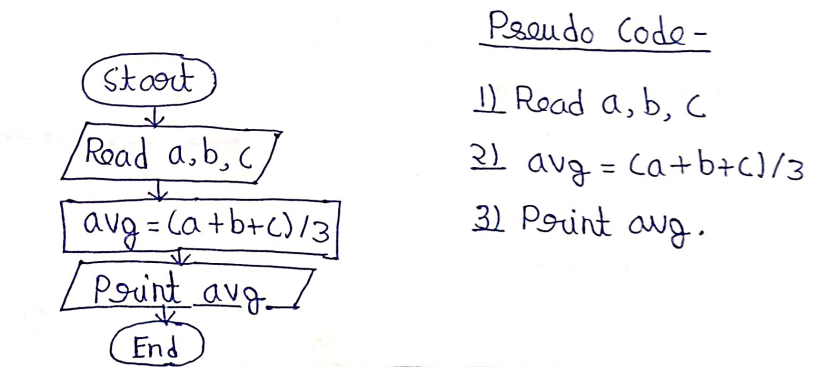 Start
Read a, b, c
avg = (a+b+c)/3
Print avg
End
Pseudo Code -
1) Read a, b, c
2) avg = (a+b+c)/3
3) Print avg.